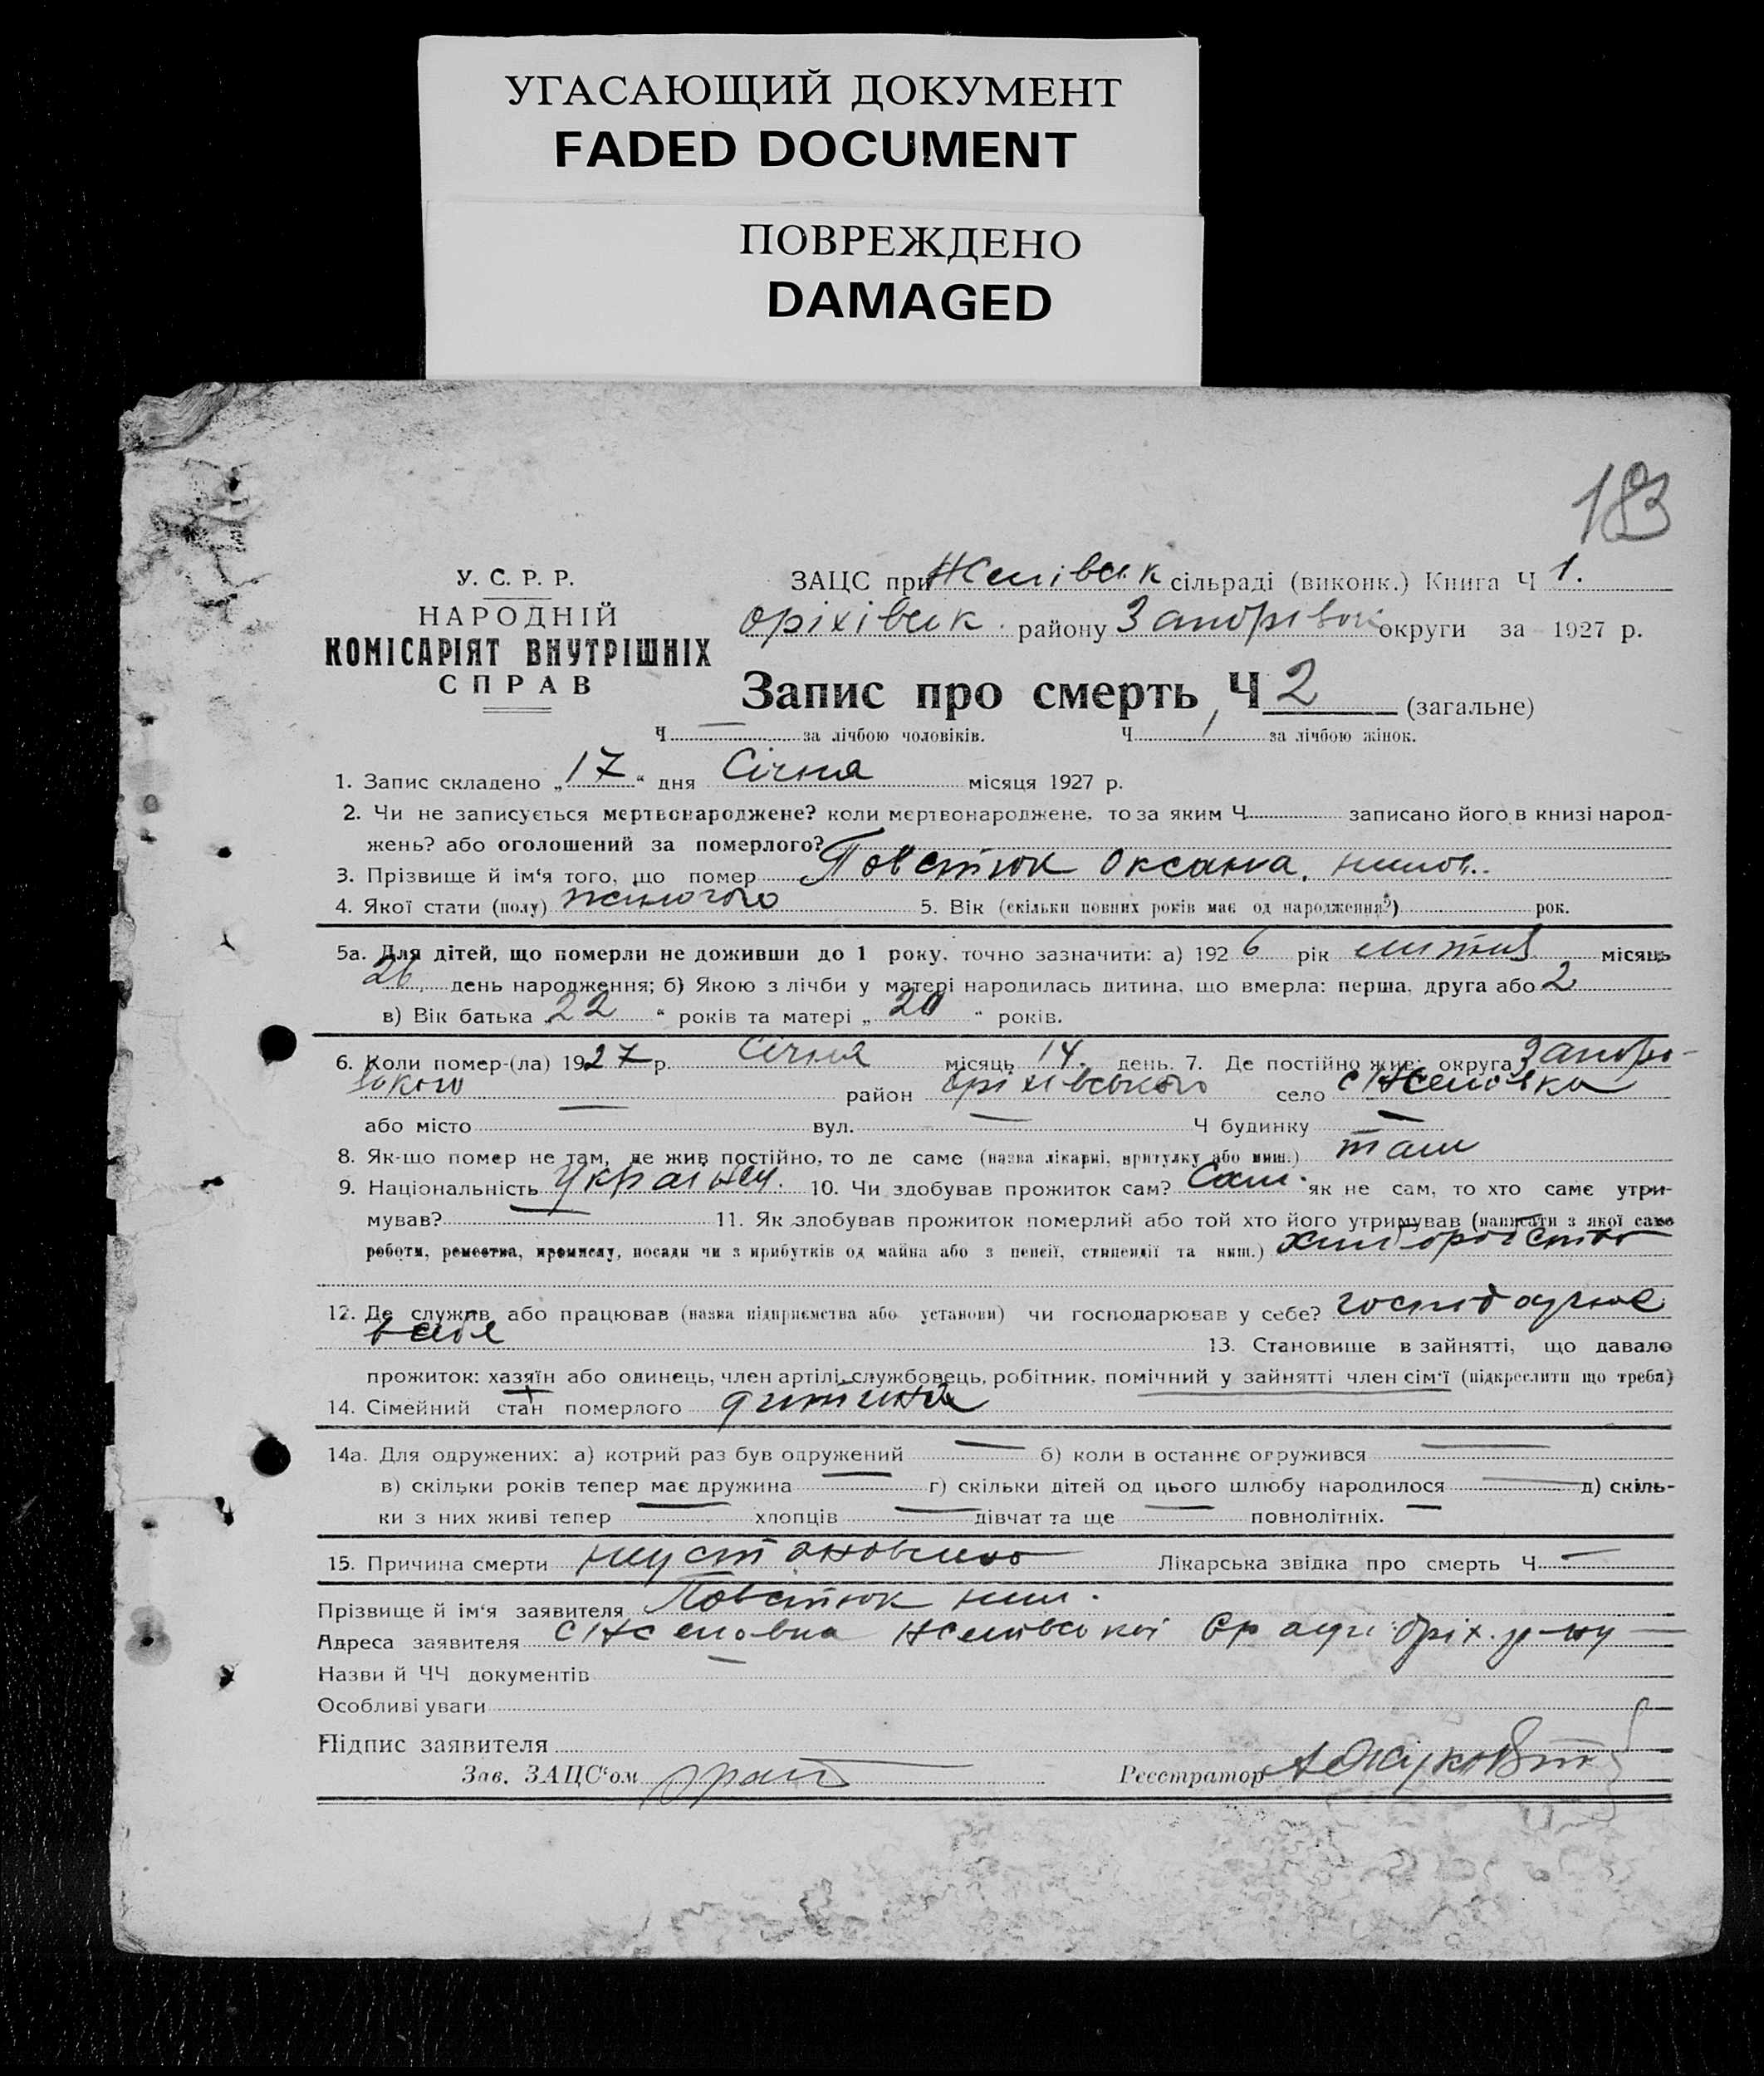 УГАСАЮЩИЙ ДОКУМЕНТ
FADED DOCUMENT
ПОВРЕЖДЕНО
DAMAGED
183
У. С. Р. Р.
НАРОДНІЙ
КОМІСАРІЯТ ВНУТРІШНІХ
СПРАВ
ЗАЦС при сільраді (виконк.) Книга Ч 1.
оріхівськ. району Запорізької округи за 1927 р.
Запис про смерть Ч 2 (загальне)
Ч — за лічбою чоловіків. Ч 1 за лічбою жінок.
1. Запис складено „17“ дня Січня місяця 1927 р.
2. Чи не записується мертвонароджене? коли мертвонароджене, то за яким Ч записано його в книзі народ-
жень? або оголошений за померлого?
3. Прізвище й ім‘я того, що помер Повстюк Оксана.
4. Якої стати (полу) жиночого 5. Вік (скільки повних років має од народження?) рок.
5а. Для дітей, що померли не доживши до 1 року, точно зазначити: а) 1926 рік місяць
26 день народження; б) Якою з лічби у матері народилась дитина, що вмерла: перша, друга або 2
в) Вік батька „22“ років та матері „20“ років.
6. Коли помер-(ла) 1927 р. Січня місяць 14 день. 7. Де постійно жив: округа Запорі-
зького район оріхівського село
або місто — вул. — Ч будинку —
8. Як-що помер не там, де жив постійно, то де саме (назва лікарні, притулку або инш.) там
9. Національність Українец. 10. Чи здобував прожиток сам? Сам. як не сам, то хто саме утри-
мував? — 11. Як здобував прожиток померлий або той хто його утримував (написати з якої само
роботи, ремества, промислу, посади чи з прибутків од майна або з пенсії, стипендії та инш.) хлиборобство
12. Де служив або працював (назва підприємства або установи) чи господарював у себе? господарює
в себе 13. Становище в зайнятті, що давало
прожиток: хазяїн або одинець, член артілі, службовець, робітник, помічний у зайнятті член сім‘ї (підкреслити що треба)
14. Сімейний стан померлого дитина
14а. Для одружених: а) котрий раз був одружений — б) коли в останнє огружився —
в) скільки років тепер має дружина — г) скільки дітей од цього шлюбу народилося — д) скіль-
ки з них живі тепер — хлопців — дівчат та ще — повнолітніх. —
15. Причина смерти неустановлено Лікарська звідка про смерть Ч —
Прізвище й ім‘я заявителя Повстюк
Адреса заявителя Оріх. р-ну
Назви й ЧЧ документів —
Особливі уваги
Підпис заявителя
Зав. ЗАЦС‘ом
Реєстратор